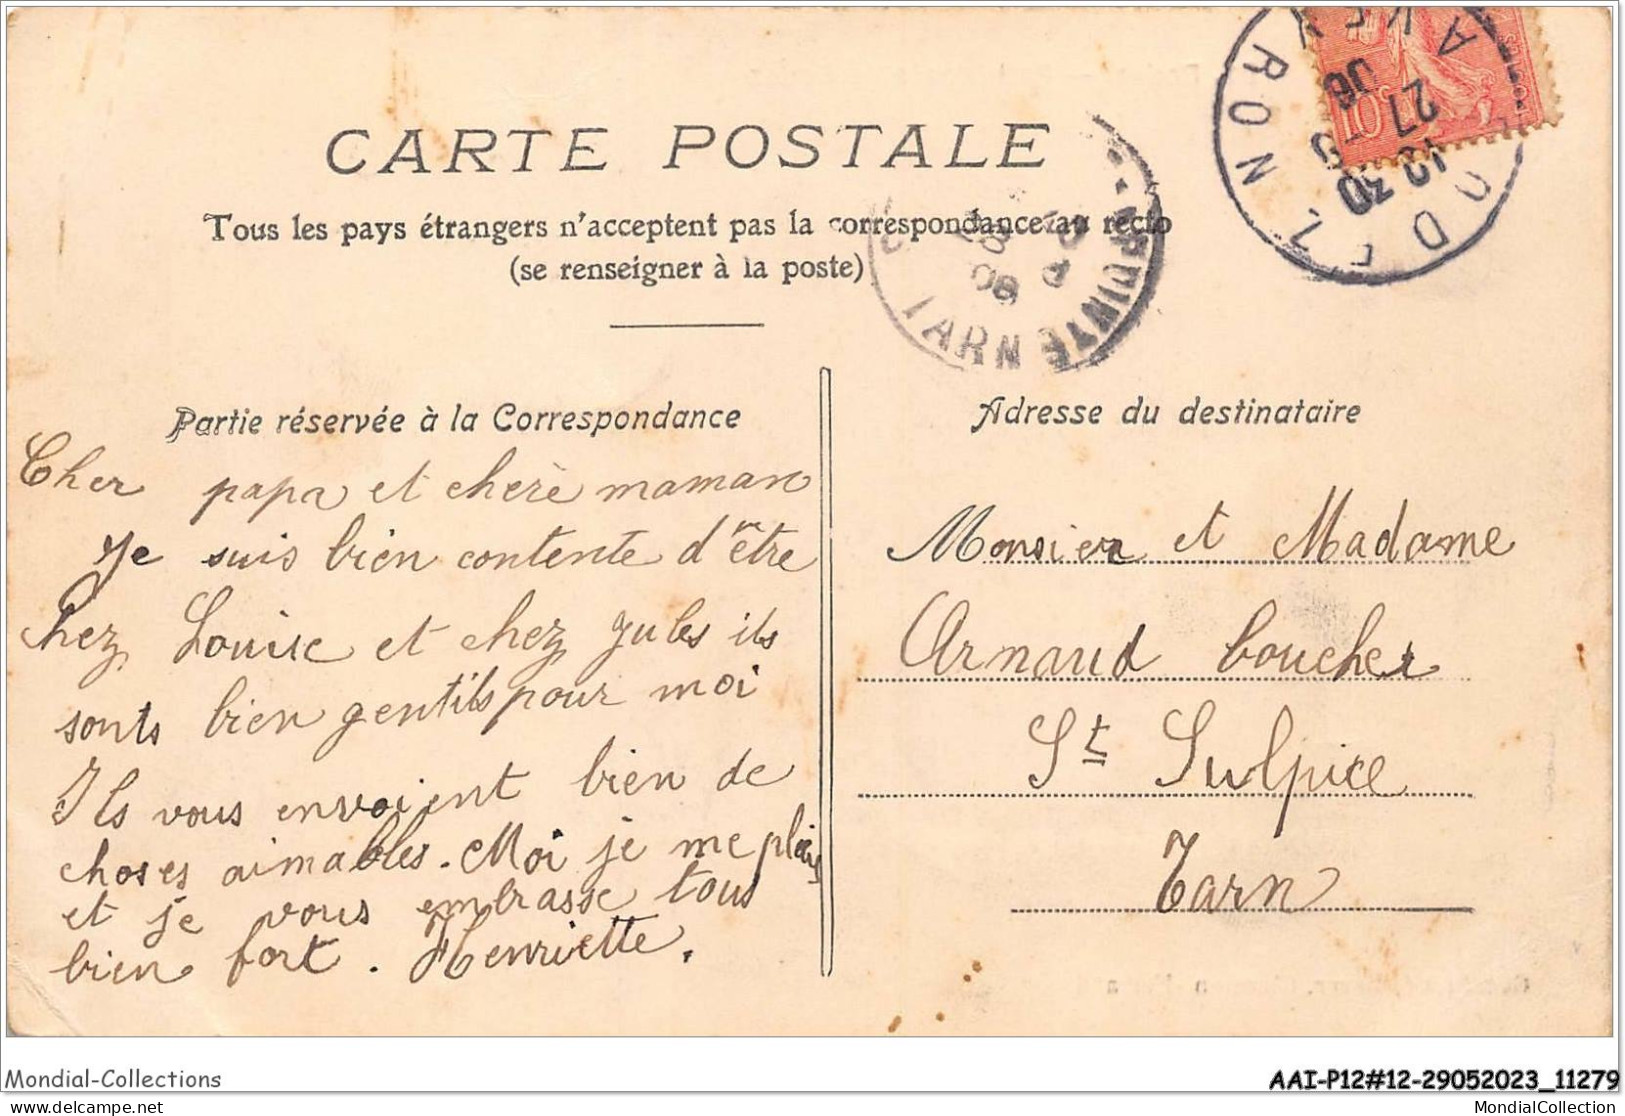 CARTE POSTALE
Tous les pays étrangers n'acceptent pas la correspondance au recto
(se renseigner à la poste)
RODEZ
AVEYRON
10 30
27 -5
06
TARN
28 5
06
Partie réservée à la Correspondance
Cher papa et cherè maman
Je suis bien contente d'être
chez Louise et chez Jules ils
sonts bien gentils pour moi
Ils vous envoient bien de
choses aimables. Moi je me plais
et je vous embrasse tous
bien fort. Henriette.
Adresse du destinataire
Monsier et Madame
Arnaud boucher
St Sulpice
Tarn
Mondial-Collections
AAI-P12#12-29052023_11279
www.delcampe.net
MondialCollection